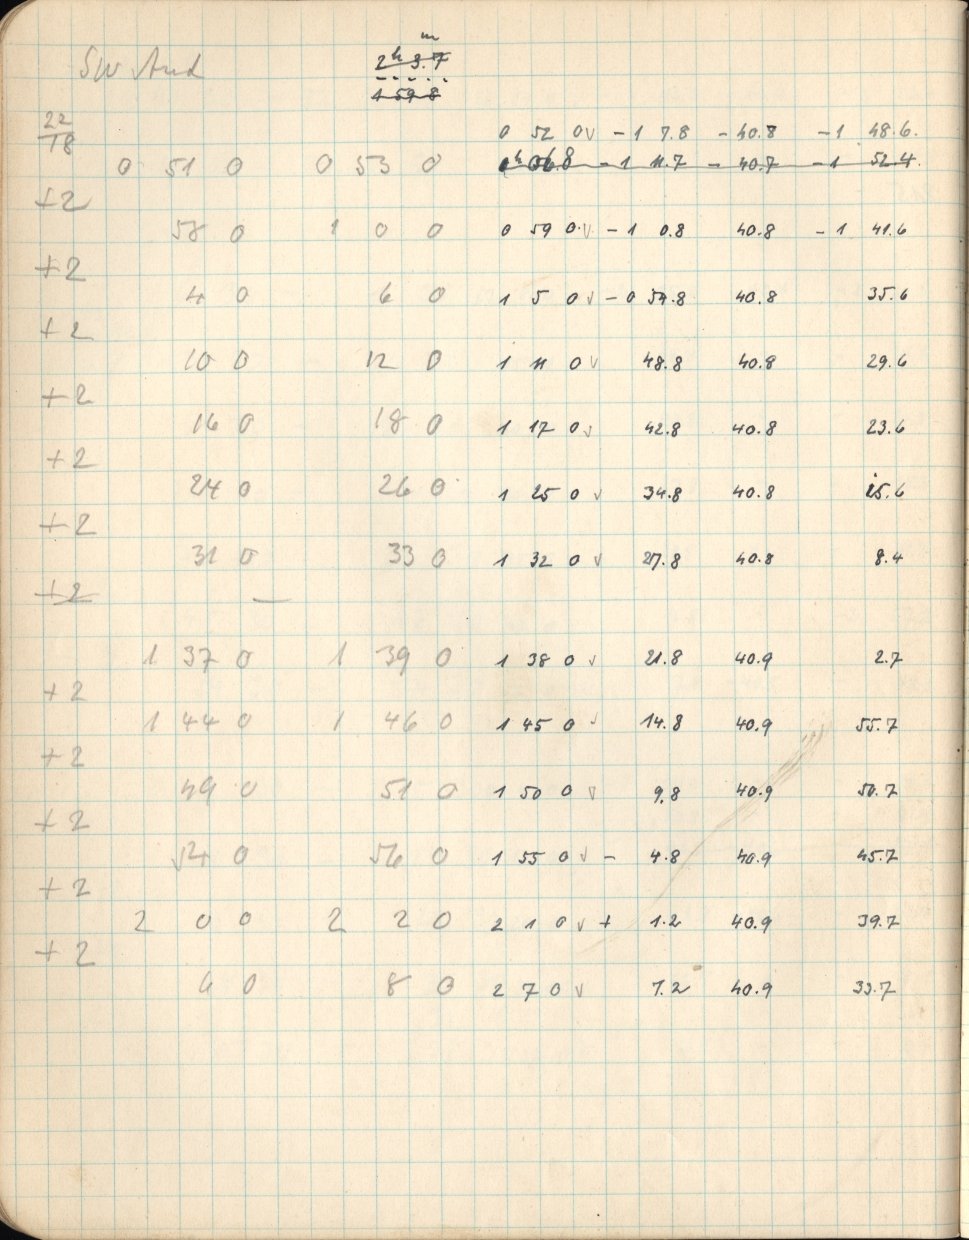 SW And
2h 3.7m
1 59 8
22
18
0 52 0 v - 1 7.8 - 40.8 - 1 48.6.
0 51 0 0 53 0 - 1 11.7 - 40.7 - 1 52.4.
+2
58 0 1 0 0 0 59 0 v - 1 0.8 40.8 - 1 41.6
+2
4 0 6 0 1 5 0 v - 0 54.8 40.8 35.6
+2
10 0 12 0 1 11 0 v 48.8 40.8 29.6
+2
16 0 18 0 1 17 0 v 42.8 40.8 23.6
+2
24 0 26 0 1 25 0 v 34.8 40.8 15.6
+2
31 0 33 0 1 32 0 v 27.8 40.8 8.4
+2 —
1 37 0 1 39 0 1 38 0 v 21.8 40.9 2.7
+2
1 44 0 1 46 0 1 45 0 v 14.8 40.9 55.7
+2
49 0 51 0 1 50 0 v 9.8 40.9 50.7
+2
54 0 56 0 1 55 0 v - 4.8 40.9 45.7
+2
2 0 0 2 2 0 2 1 0 v + 1.2 40.9 39.7
+2
6 0 8 0 2 7 0 v 7.2 40.9 33.7